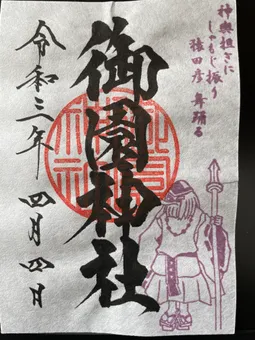 神輿担きに
しゃもじ振り
猿田彦舞踊る
御園神社
令和三年四月四日